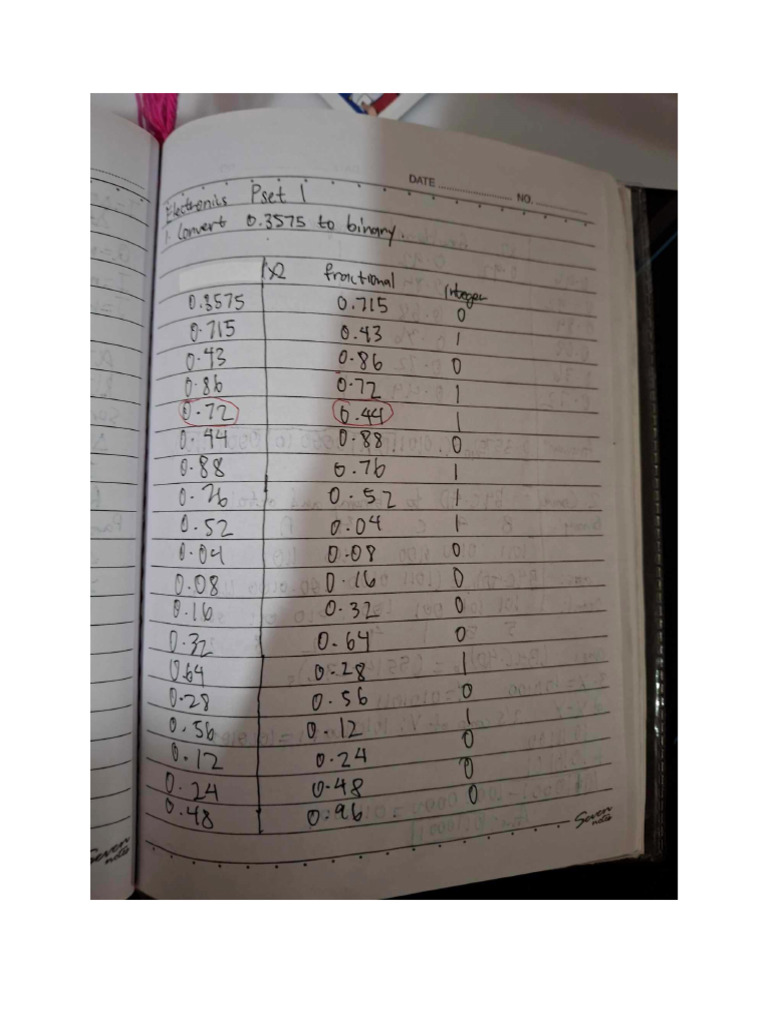 DATE ........................ NO. ................
Electronics Pset 1
1. Convert 0.3575 to binary.
x2 fractional Integer
0.3575 0.715 0
0.715 0.43 1
0.43 0.86 0
0.86 0.72 1
0.72 0.44 1
0.44 0.88 0
0.88 0.76 1
0.76 0.52 1
0.52 0.04 1
0.04 0.08 0
0.08 0.16 0
0.16 0.32 0
0.32 0.64 0
0.64 0.28 1
0.28 0.56 0
0.56 0.12 1
0.12 0.24 0
0.24 0.48 0
0.48 0.96 0
Seven note
Seven note